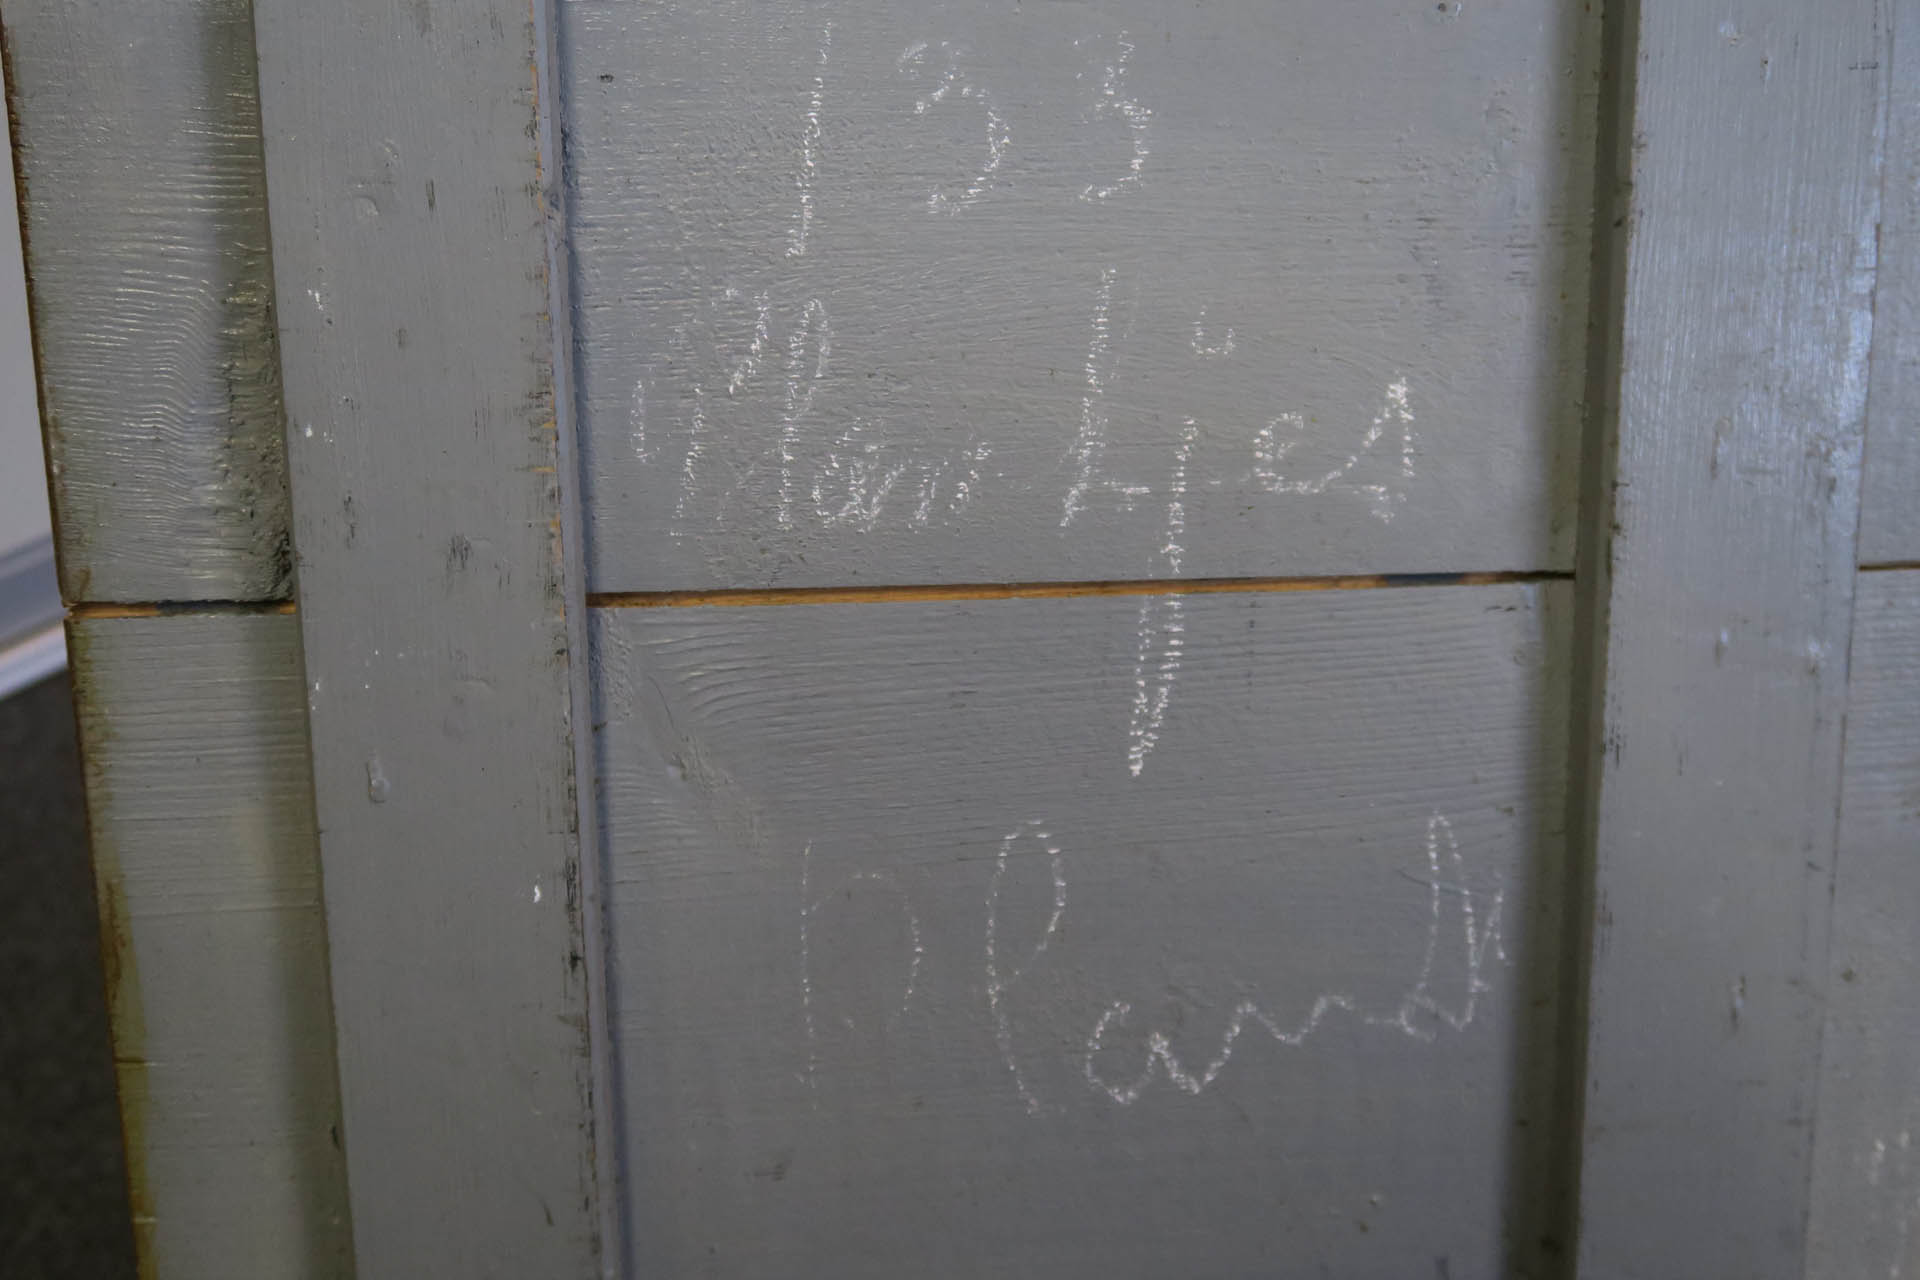 133
Martjes
Plants